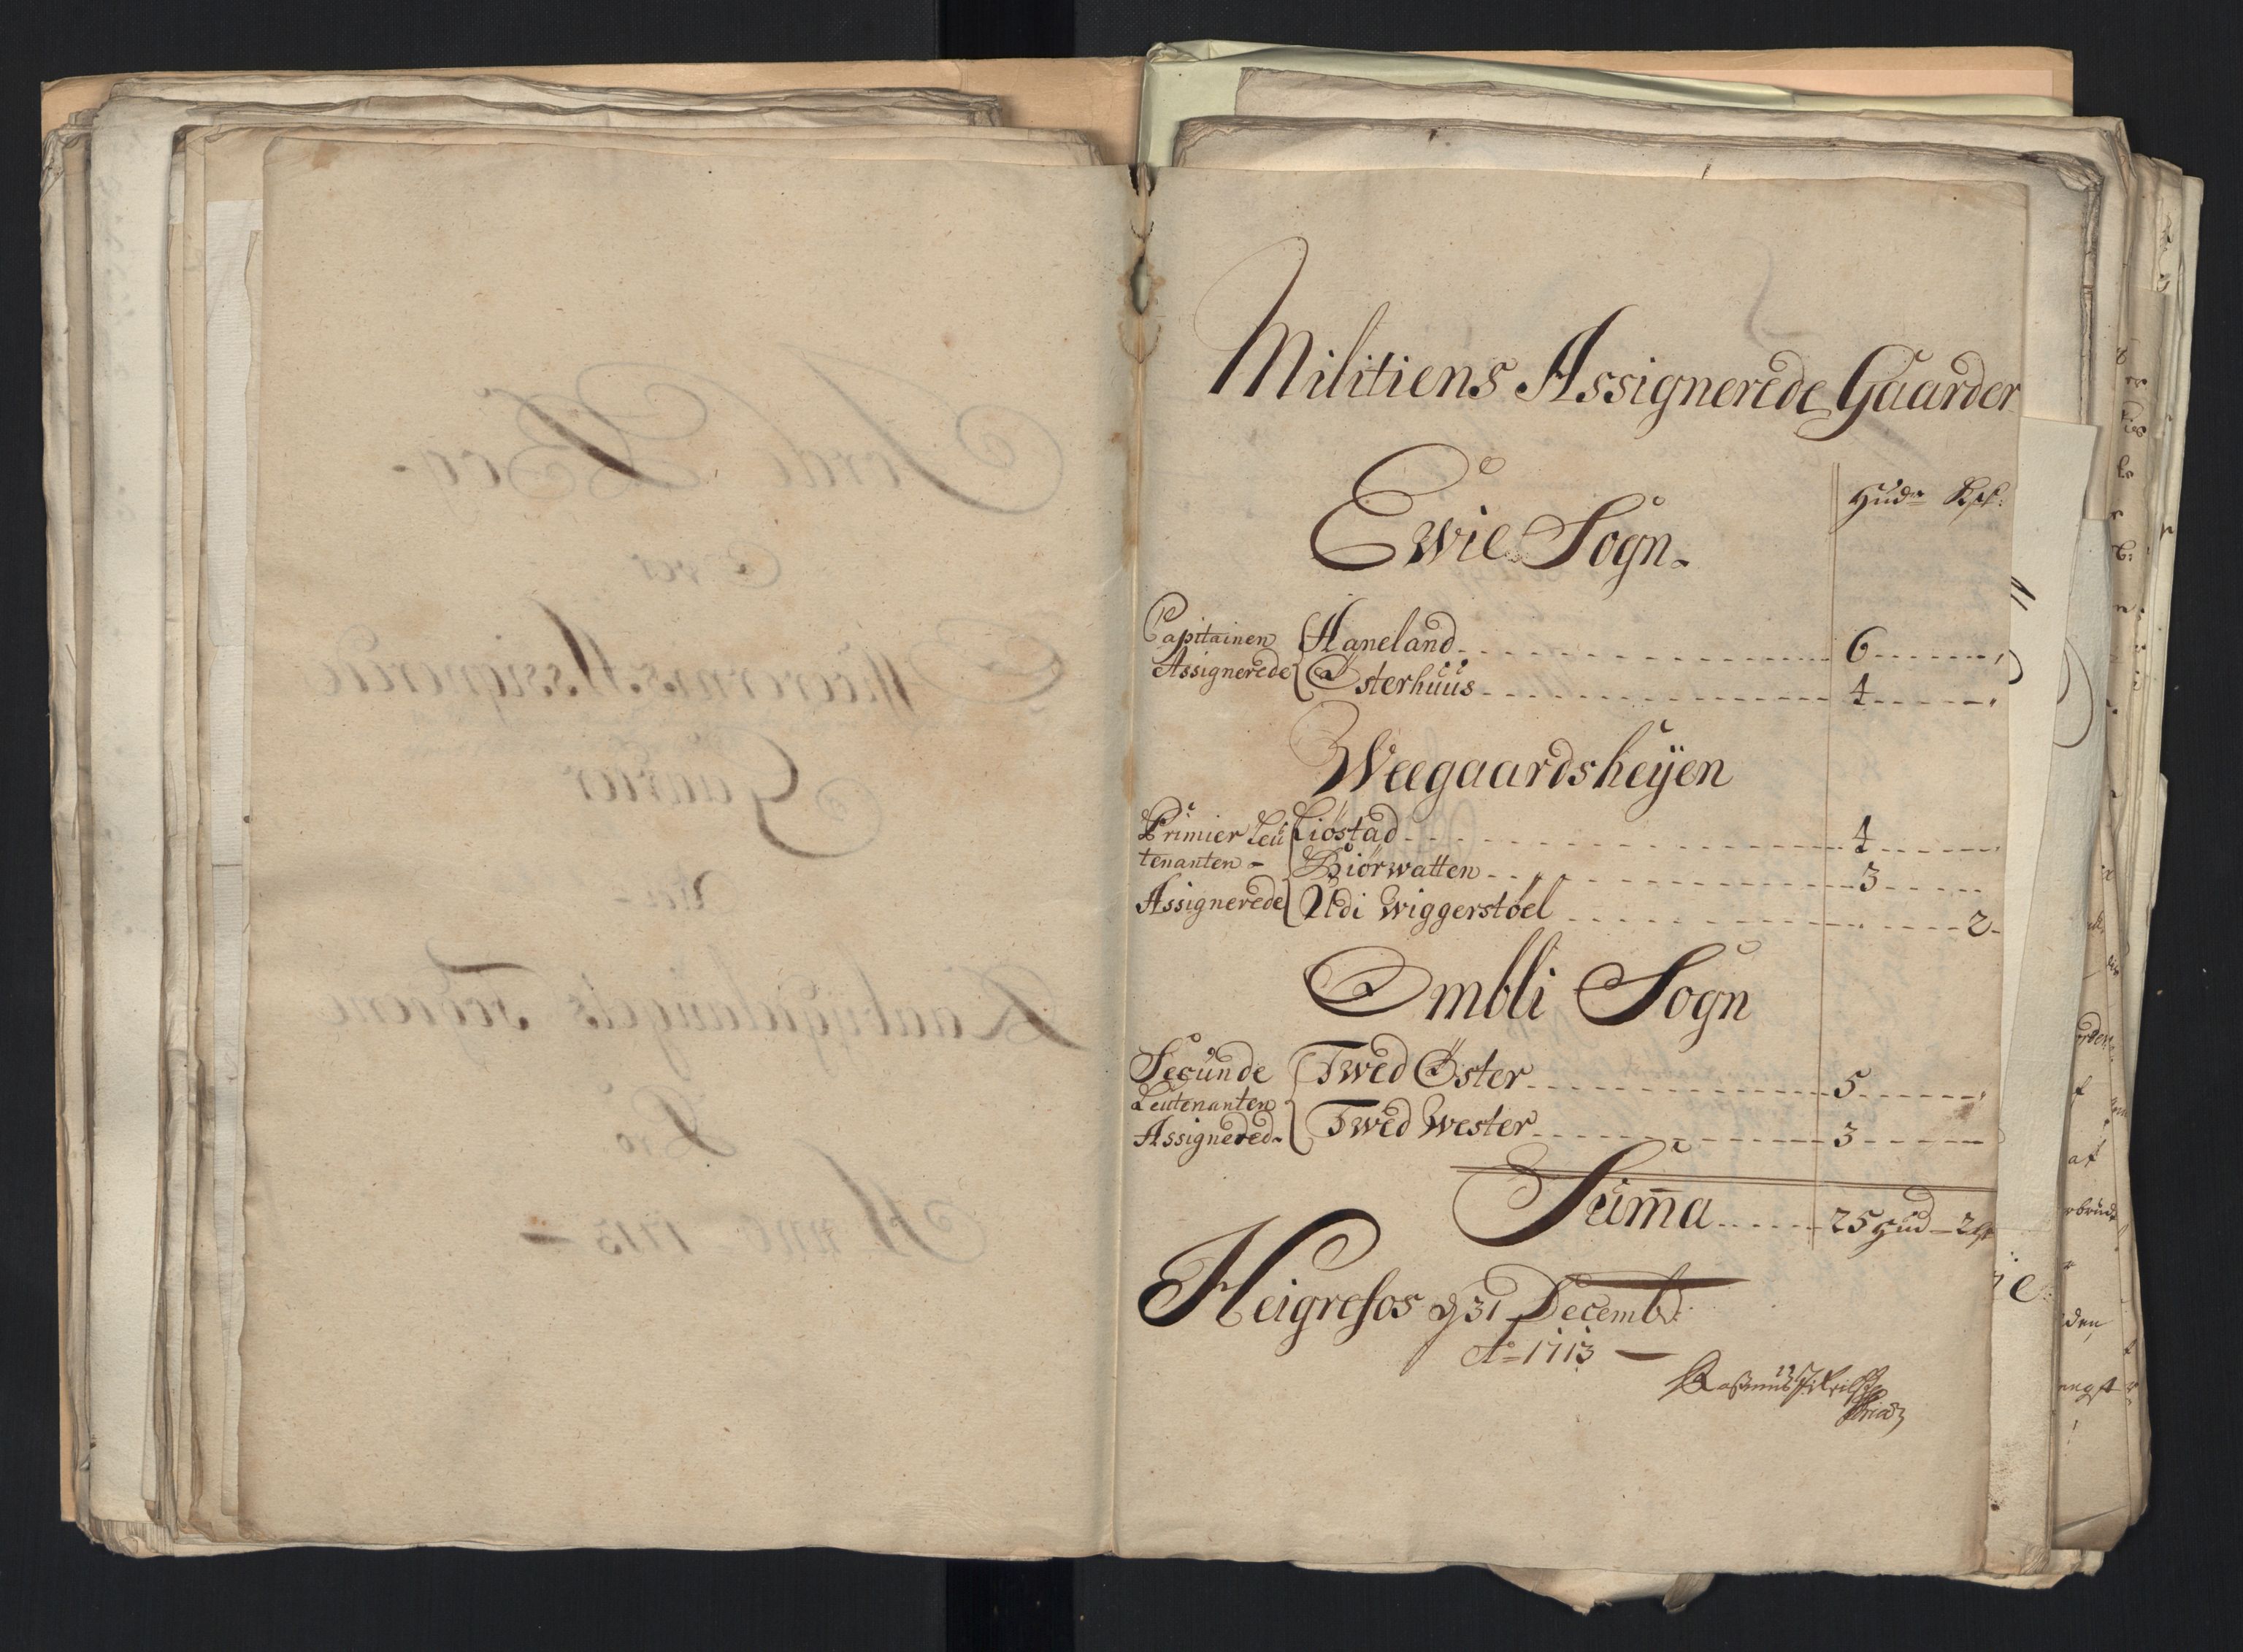 Militiens Assignerede Gaarder
Hudr Kpf:
Ewie Sogn.
Capitainen Assignerede { Haneland 6
Østerhuus 4
Weegaardsheÿen
Primier Leutenanten - Assignerede { Liöstad 4
Biörwatten 3
Udi Wiggerstøel 2
Ombli Sogn
Secunde Leutenanten Assignered. { Twed Øster 5
Twed Wester 3
Sum̄a 25 Hud - 2
Heigrefos d 31 Decemb:
Ao 1713